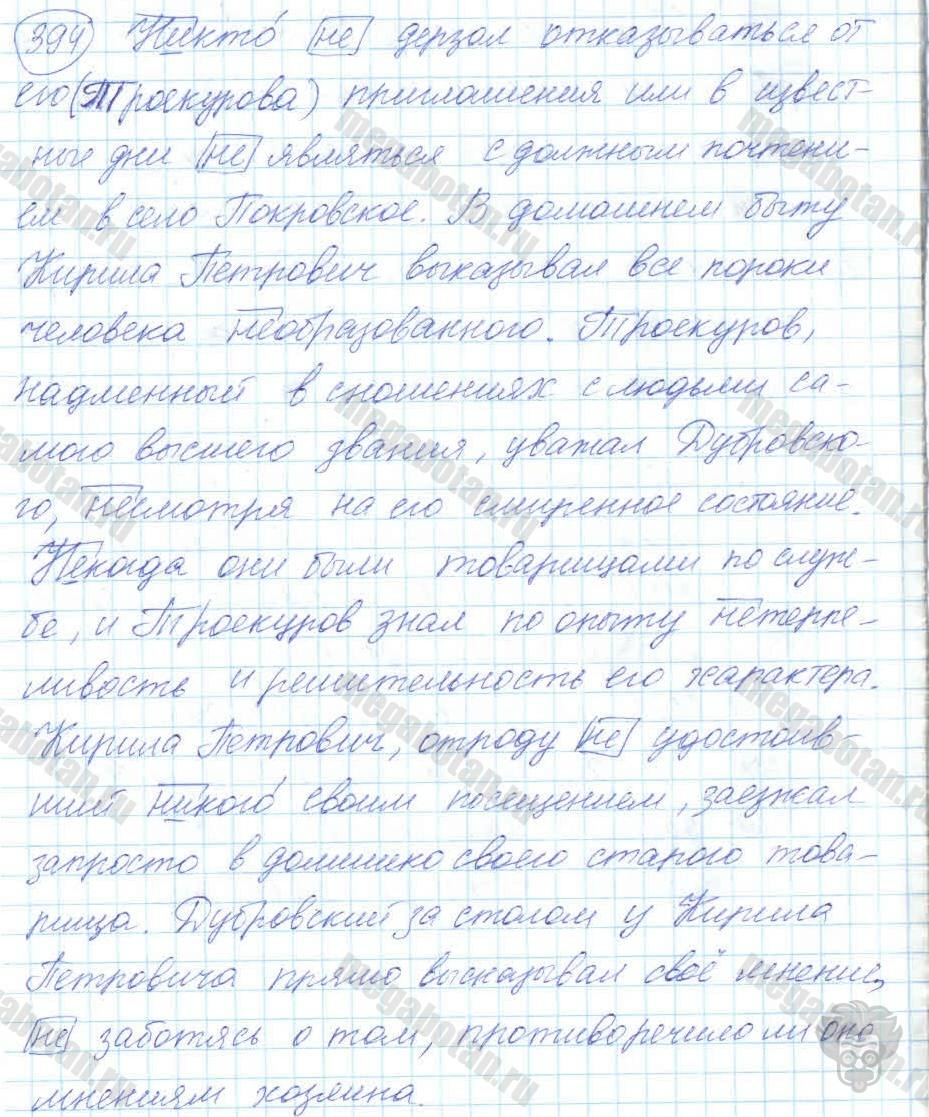 394 Никто́ не дерзал отказываться от
его (Троекурова) приглашения или в извест-
ные дни не являться с должным почтени-
ем в село Покровское. В домашнем быту
Кирила Петрович выказывал все пороки
человека необразованного. Троекуров,
надменный в сношениях с людьми са-
мого высшего звания, уважал Дубровско-
го, несмотря на его смиренное состояние.
Некогда они были товарищами по служ-
бе, и Троекуров знал по опыту нетерпе-
ливость и решительность его характера.
Кирила Петрович, отроду не удостоив-
ший никого́ своим посещением, заезжал
запросто в домишко своего старого това-
рища. Дубровский за столом у Кирила
Петровича прямо высказывал своё мнение,
не заботясь о том, противоречило ли оно
мнениям хозяина.
megabotan.ru
megabotan.ru
megabotan.ru
megabotan.ru
megabotan.ru
megabotan.ru
megabotan.ru
megabotan.ru
megabotan.ru
megabotan.ru
megabotan.ru
megabotan.ru